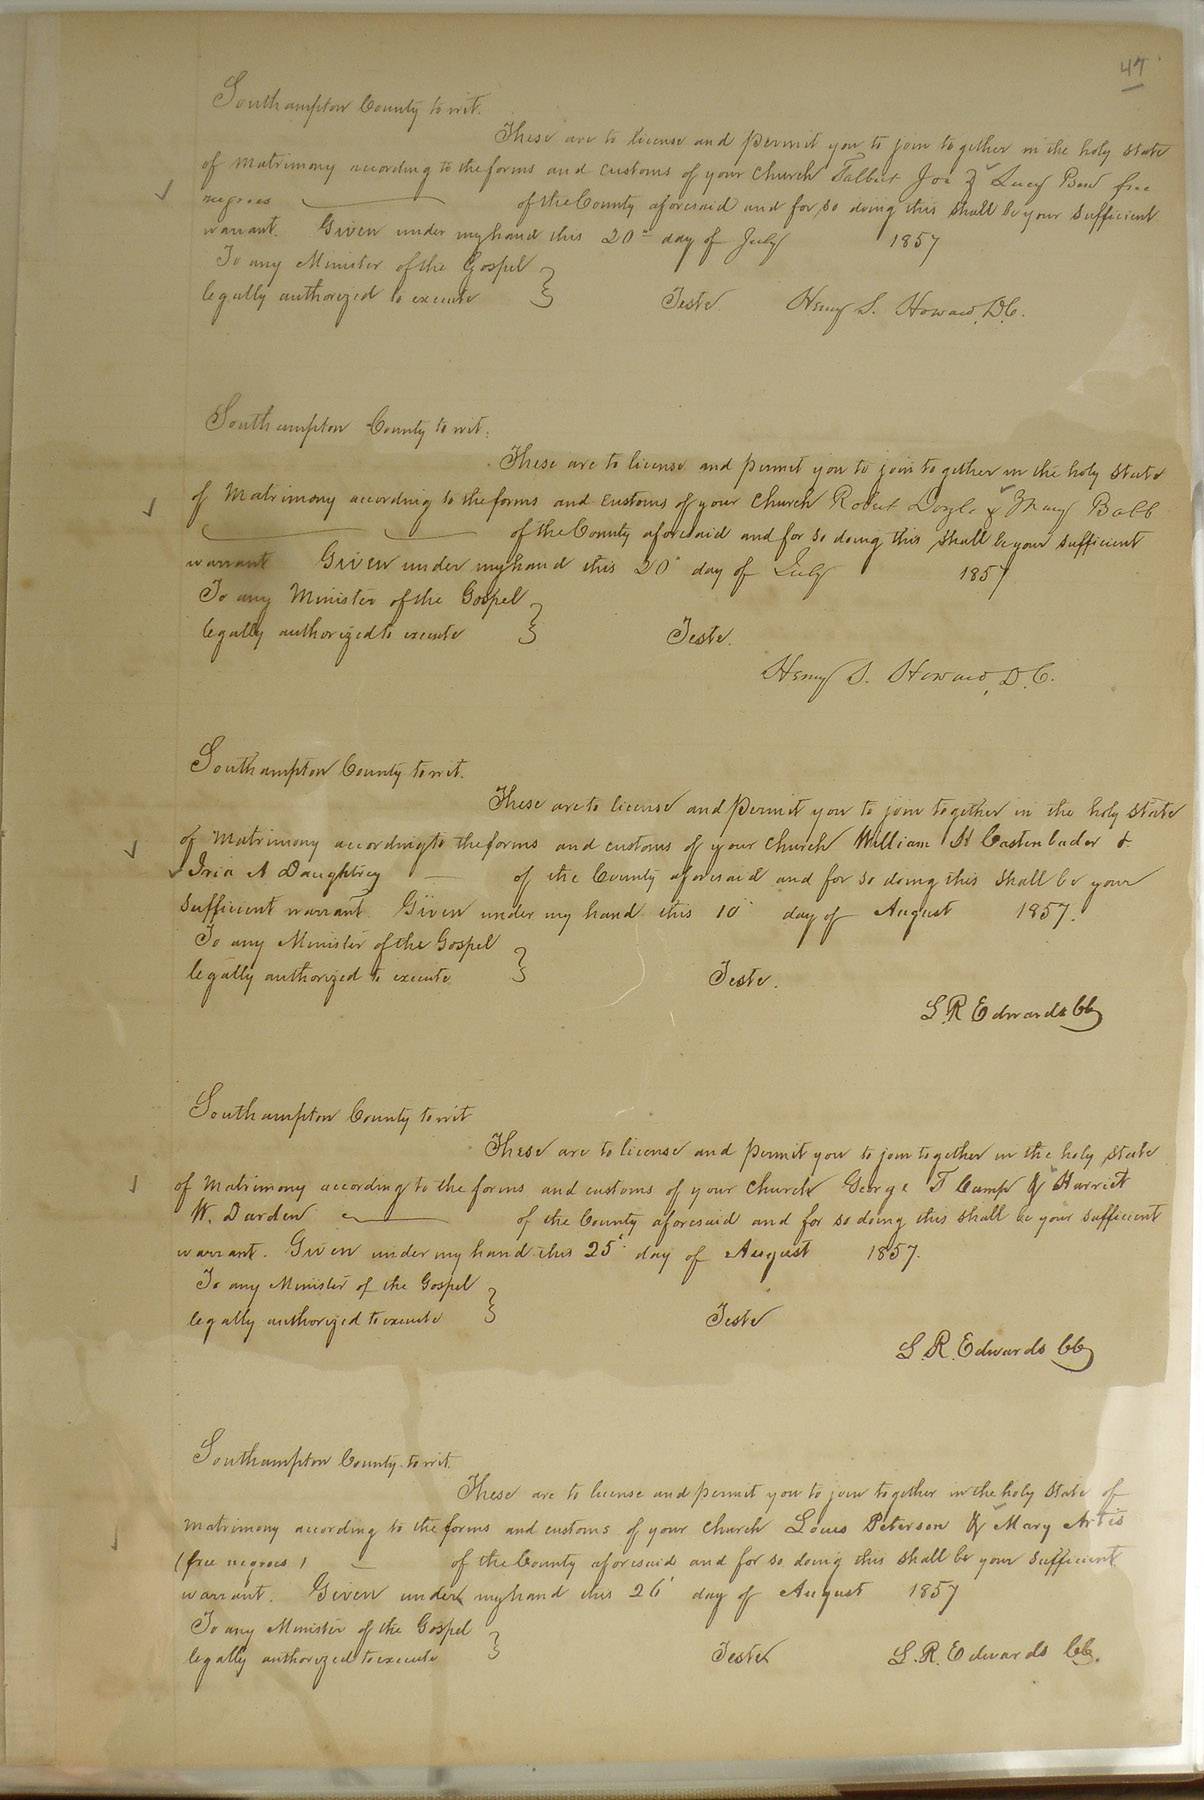 47
Southampton County to wit.
These are to license and permit you to join together in the holy state
of Matrimony according to the forms and customs of your Church Talbert Joe & Lucy free
negroes of the County aforesaid and for so doing this shall be your sufficient
warrant. Given under my hand this 20" day of July 1857
To any Minister of the Gospel
legally authorized to execute } Teste. Henry S. Howard, D.C.
Southampton County to wit:
These are to license and permit you to join together in the holy state
of Matrimony according to the forms and customs of your Church Robert Doyle & Mary Babb
of the County aforesaid and for so doing this shall be your sufficient
warrant Given under my hand this 20" day of July 1857
To any Minister of the Gospel
legally authorized to execute } Teste.
Henry S. Howard, D.C.
Southampton County to wit.
These are to license and permit you to join together in the holy state
of Matrimony according to the forms and customs of your Church William H Castenbader &
A Daughtrey of the County aforesaid and for so doing this shall be your
sufficient warrant Given under my hand this 10" day of August 1857.
To any Minister of the Gospel
legally authorized to execute } Teste.
L. R. Edwards CC
Southampton County to wit
These are to license and permit you to join together in the holy state
of Matrimony according to the forms and customs of your Church George T Camp & Harriet
W. Darden of the County aforesaid and for so doing this shall be your sufficient
warrant. Given under my hand this 25" day of August 1857.
To any Minister of the Gospel
legally authorized to execute } Teste
L. R. Edwards CC
Southampton County to wit.
These are to license and permit you to join together in the holy state of
Matrimony according to the forms and customs of your Church Louis Peterson & Mary Artis
(free negroes) of the County aforesaid and for so doing this shall be your sufficient
warrant. Given under my hand this 26" day of August 1857
To any Minister of the Gospel
legally authorized to execute } Teste L. R. Edwards CC.